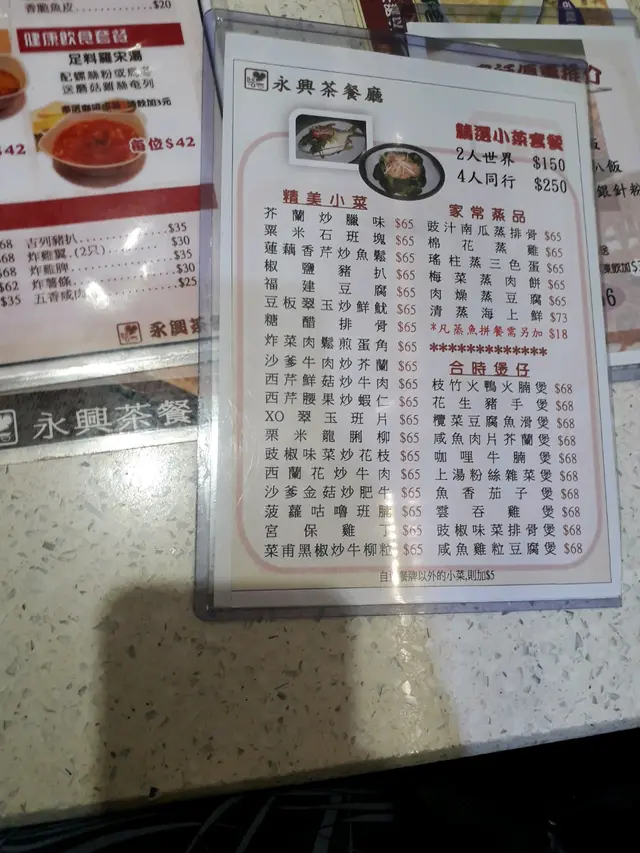 香脆魚皮 $20
健康飲食套餐
足料羅宋湯
配螺絲粉或
送蘑菇雞絲
加3元
每位$42
$42
吉列豬扒 $35
炸雞翼.(2只) $30
炸雞脾 $35
炸薯條 $30
五香咸肉 $25
$68
$68
$62
$35
永興茶
永興茶餐
永興茶餐廳
精選小菜套餐
2人世界 $150
4人同行 $250
精美小菜
芥蘭炒臘味 $65
粟米石班塊 $65
蓮藕香芹炒魚鬆 $65
椒鹽豬扒 $65
福建豆腐 $65
豆板翠玉炒鮮魷 $65
糖醋排骨 $65
炸菜肉鬆煎蛋角 $65
沙爹牛肉炒芥蘭 $65
西芹鮮菇炒牛肉 $65
西芹腰果炒蝦仁 $65
XO翠玉班片 $65
栗米龍脷柳 $65
豉椒味菜炒花枝 $65
西蘭花炒牛肉 $65
沙爹金菇炒肥牛 $65
菠蘿咕嚕班腩 $65
宮保雞丁 $65
菜甫黑椒炒牛柳粒 $65
家常蒸品
豉汁南瓜蒸排骨 $65
棉花蒸雞 $65
瑤柱蒸三色蛋 $65
梅菜蒸肉餅 $65
肉燥蒸豆腐 $65
清蒸海上鮮 $73
*凡蒸魚拼餐需另加 $18
*************
合時煲仔
枝竹火鴨火腩煲 $68
花生豬手煲 $68
欖菜豆腐魚滑煲 $68
咸魚肉片芥蘭煲 $68
咖哩牛腩煲 $68
上湯粉絲雜菜煲 $68
魚香茄子煲 $68
雲吞雞煲 $68
豉椒味菜排骨煲 $68
咸魚雞粒豆腐煲 $68
餐牌以外的小菜,則加$5
飯
八飯
銀針粉